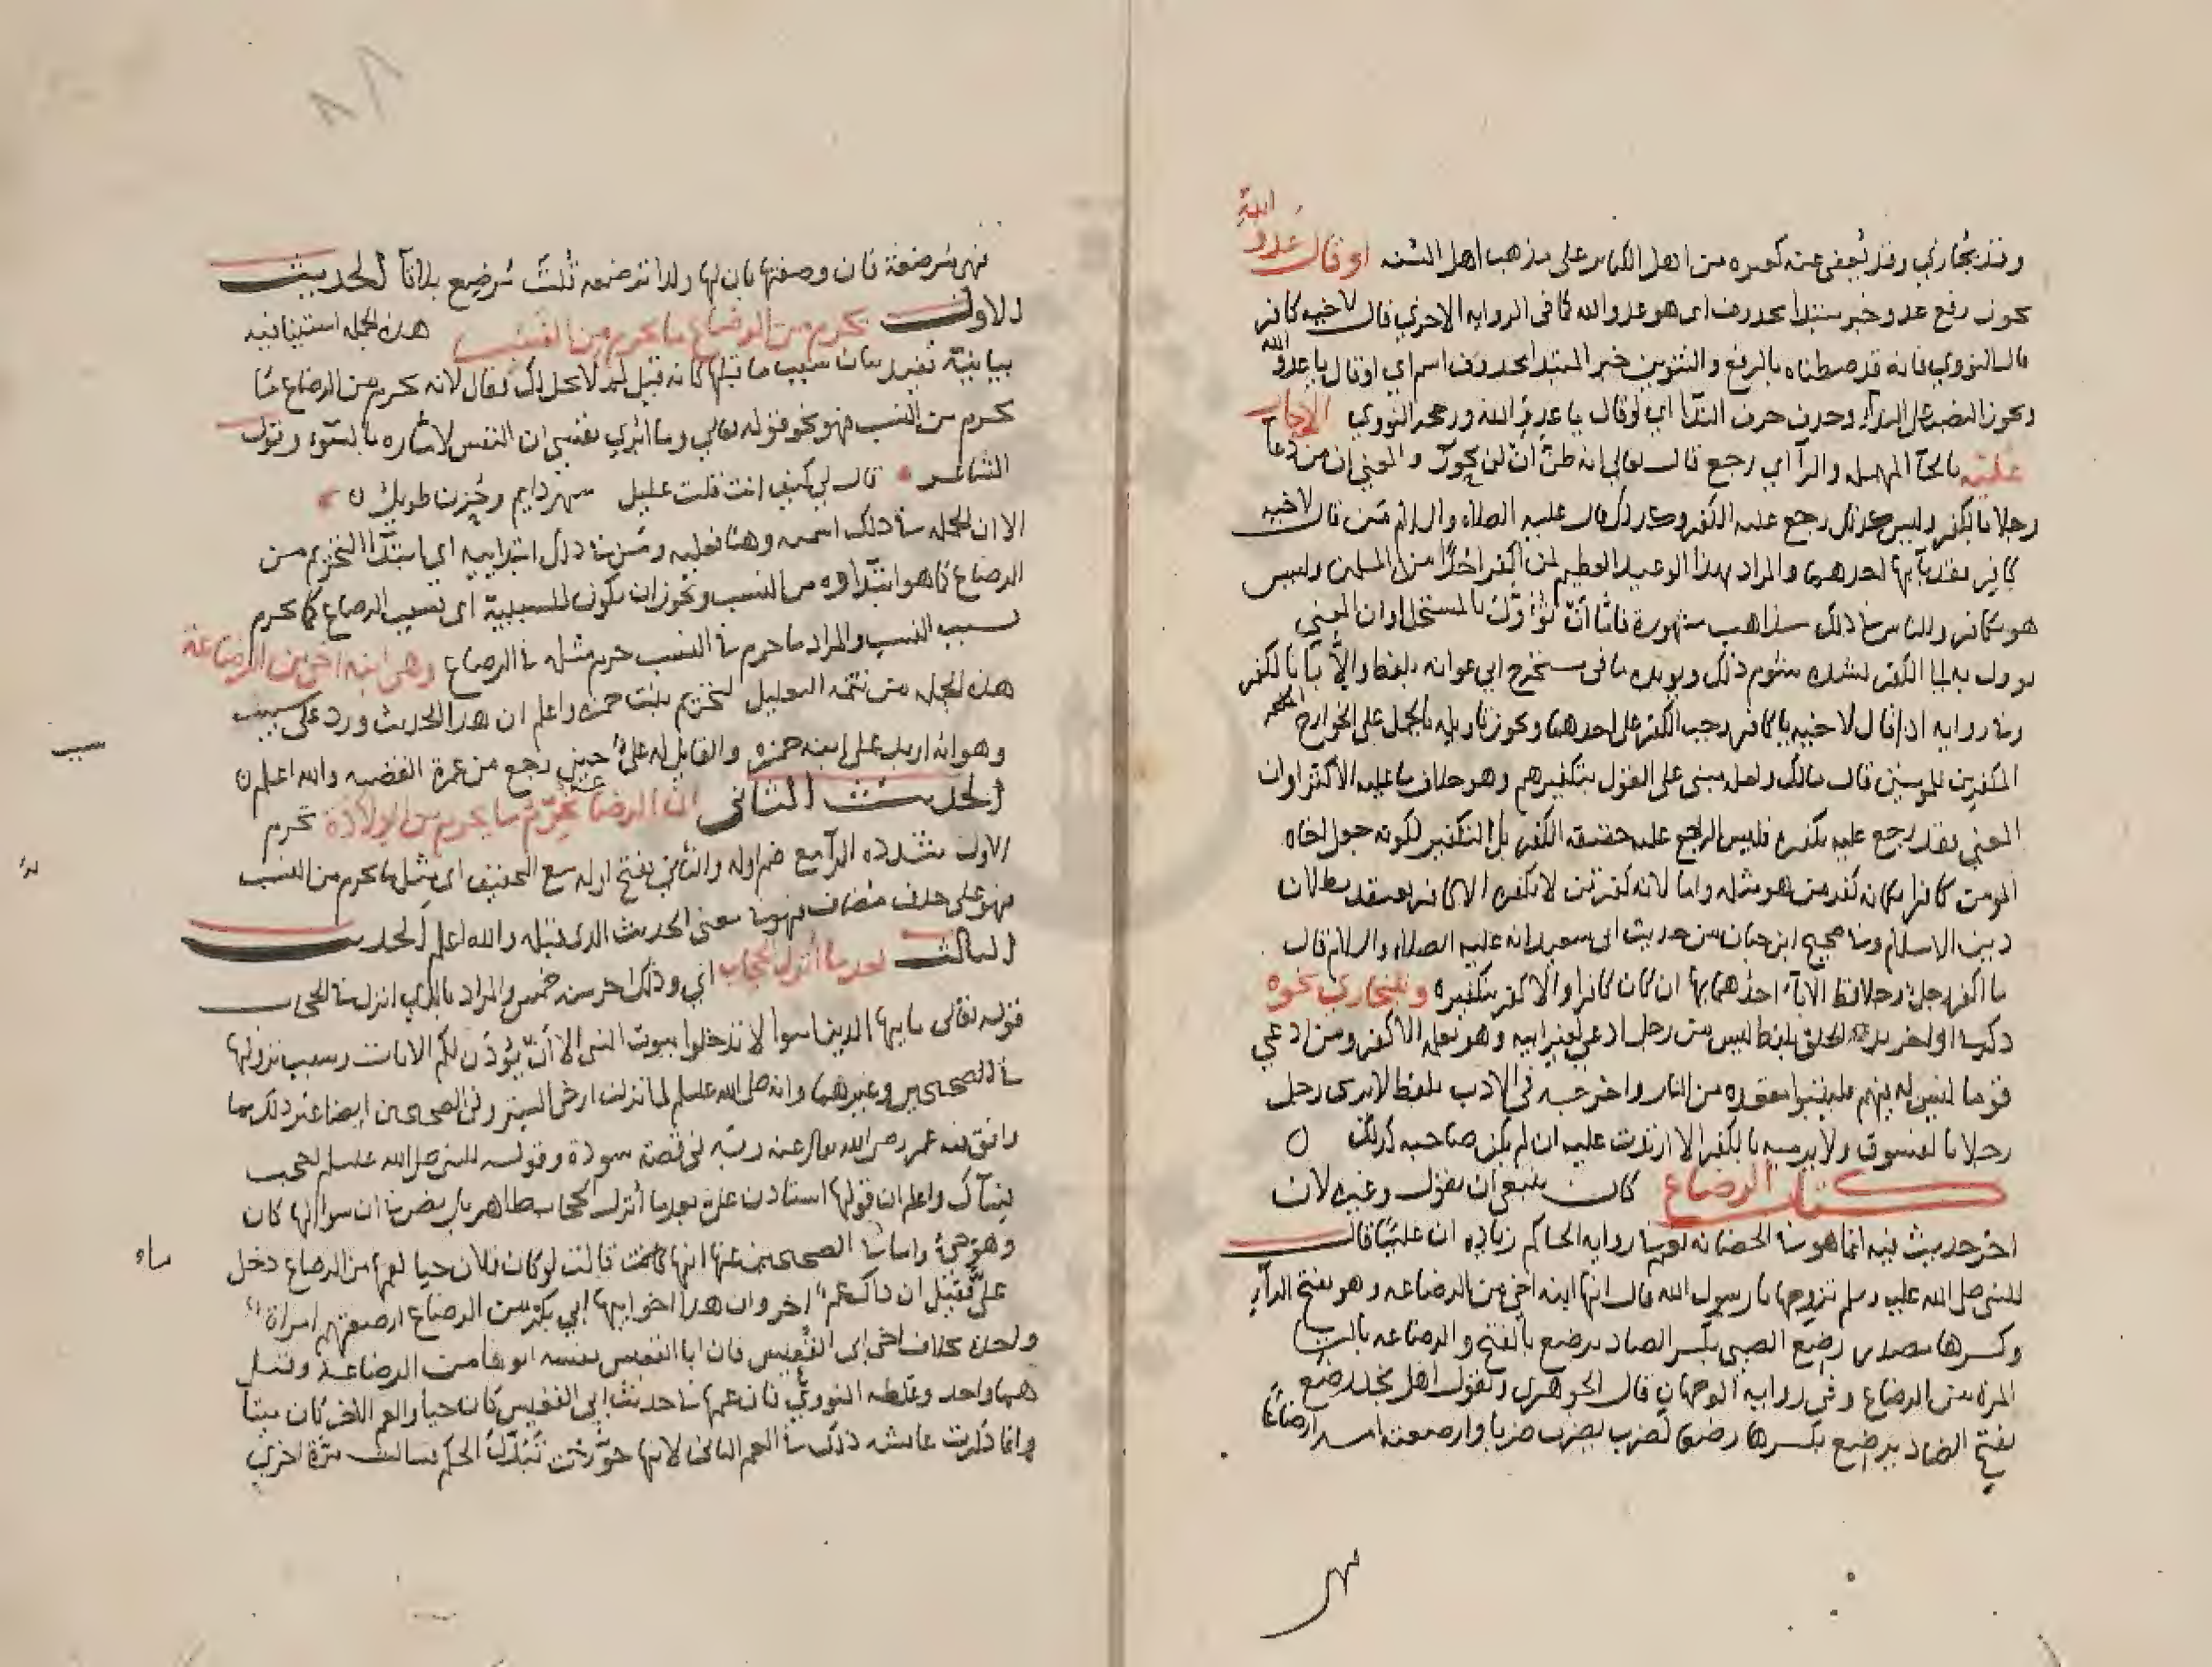 وقد يجازي وقد يُعفى عنه كغيره من اهل الكبائر على مذهب اهل السنه او قال عدو الله
يجوز رفع عدو خبر مبتدا محذوف اى هو عدو الله كما فى الروايه الاخرى قال لاخيه كافر
قال النووي فانه قد ضبطناه بالرفع والتنوين خبر المبتدا محذوف اسم اي او قال يا عدو الله
ويجوز النصب على الندآ وحذف حرف الندآ اي او قال يا عدو الله ورجحه النووي الا حار
عليه بالحآ المهمله والرآ اي رجع قال تعالى انه ظن أن لن يحور والمعنى ان من دعا
رجلا بالكفر وليس كذلك رجع عليه الكفر وكذلك قال عليه الصلاه والسلام من قال لاخيه
كافر فقد بآ بها احدهما والمراد بهذا الوعيد العظيم لمن اكفر احدًا من المسلمين وليس
هو بكافر وللناس في ذلك مذاهب مشهورة فاما أن يؤول بالمستحل او ان المعنى
يوول به الى الكفر لشده شوم ذلك ويويده ما فى مستخرج ابي عوانه بلفظ والا بآ بالكفر
وفي روايه اذا قال لاخيه يا كافر وجب الكفر على احدهما ويجوز تاويله بالحمل على الخوارج
المكفرين للمومنين قال مالك ولعله مبنى على القول بتكفيرهم وهو خلاف ما عليه الاكثر او ان
المعنى فقد رجع عليه تكفيره فليس الراجع عليه حقيقه الكفر بل التكفير لكونه جعل اخاه
المومن كافرا فكانه كفر من هو مثله واما لانه كفر من لا يكفره الا كافر يعتقد بطلان
دين الاسلام وفي صحيح ابن حبان من حديث ابى سعيد انه عليه الصلاه والسلام قال
ما اكفر رجل رجلا قط الا بآ احدهما بها ان كان كافرا والا كفر بتكفيره وللبخاري نحوه
ذكره اولا بلفظ ليس من رجل ادعى لغير ابيه وهو يعلمه الا كفر ومن ادعى
قوما ليس له فيهم فليتبوا مقعده من النار واخرجه فى الادب بلفظ لا يرمى رجل
رجلا بالفسوق ولا يرميه بالكفر الا ارتدت عليه ان لم يكن صاحبه كذلك ٥
كتاب الرضاع كان ينبغي ان يقول وغيره لان
اخر حديث فيه انما هو في الحضانه نعم في روايه الحاكم زياده ان عليًا قال
للنبي صلى الله عليه وسلم تزوجها يا رسول الله قال انها ابنه اخي من الرضاعه وهو بفتح الرآ
وكسرها مصدر رضع الصبي بكسر الضاد يرضع بالفتح والرضاعه بالت
المره من الرضاع وفى روايه الوجهان قال الجوهرى ويقول اهل نجد رضع
بفتح الضاد يرضع بكسرها رضعا كضرب يضرب ضربا وارضعته امه ارضاعًا
فهى
فهي مُرضعة فان وصفتها بان لها ولدا ترضعه قلت مُرضع بلا تآ الحديث
الاول يحرم من الرضاع ما يحرم من النسب هذه الجمله استينافيه
بيانيّة تفيد بيان سبب ما قبلها كانه قيل لم لا تحل لك فقال لانه يحرم من الرضاع ما
يحرم من النسب فهو نحو قوله تعالى وما ابرى نفسي ان النفس لاماره بالسوء وقول
الشاعر قال لي كيف انت قلت عليل سهر دايم وحزن طويل ٥
الا ان الجمله في ذلك اسميه وهنا فعليه ومن في ذلك ابتداييه اى ابتدآ التحريم من
الرضاع كما هو ابتداوه من النسب ويجوز ان يكون للسببية اى بسبب الرضاع كما يحرم
بسبب النسب والمراد ما حرم في النسب حرم مثله في الرضاع وهى ابنه اخى من الرضاعة
هذه الجمله من تتمه التعليل لتحريم بنت حمزه واعلم ان هذا الحديث ورد على سبب
سبب
وهو انه اريد على ابنه حمزه والقايل له علىّ حين رجع من عمرة القضيه والله اعلم ٥
الحديث الثانى ان الرضاعة تحرّم ما يحرم من الولادة تحرم
الاول بتشديد الرآ مع ضم اوله والثاني بفتح اوله مع التخفيف اى مثل ما يحرم من النسب
فهو على حذف مضاف فهو في معنى الحديث الذى قبله والله اعلم الحديث
الثالث بعد ما أنزل الحجاب اي وذلك اخر سنه خمس والمراد بالذي انزل في الحجاب
قوله تعالى يايها الذين امنوا لا تدخلوا بيوت النبى الا أن يؤذن لكم الايات وسبب نزولها
في الصحيحين وغيرهما وانه صلى الله عليه وسلم لما نزلت ارخى الستر وفى الصحيحين ايضا غير ذلك مما
وافق فيه عمر رضى الله تعالى عنه ربّه فى قصة سودة وقوله للنبى صلى الله عليه وسلم احجب
نسآك واعلم ان قولها استاذن علىّ بعد ما أنزل الحجاب ظاهر بل نص في ان سوالها كان
وهو حىّ واما ما في الصحيحين عنها انها قالت لو كان فلان حيا لعمها من الرضاع دخل
ماء
علىّ فقيل ان ذاك عم اخر وان هذا اخو ابيها ابي بكر من الرضاع ارضعتهم امراة
واحده بخلاف اخى ابى القعيس فان ابا القعيس نفسه ابوها من الرضاعه وقيل
هما واحد وغلطه النووي فان عمها في حديث ابى القعيس كان حيا والعم الاخر كان ميتا
وانما ذكرت عايشه ذلك في العم الثانى لانها جوّزت تبدّل الحكم فسالت مرّة اخرى